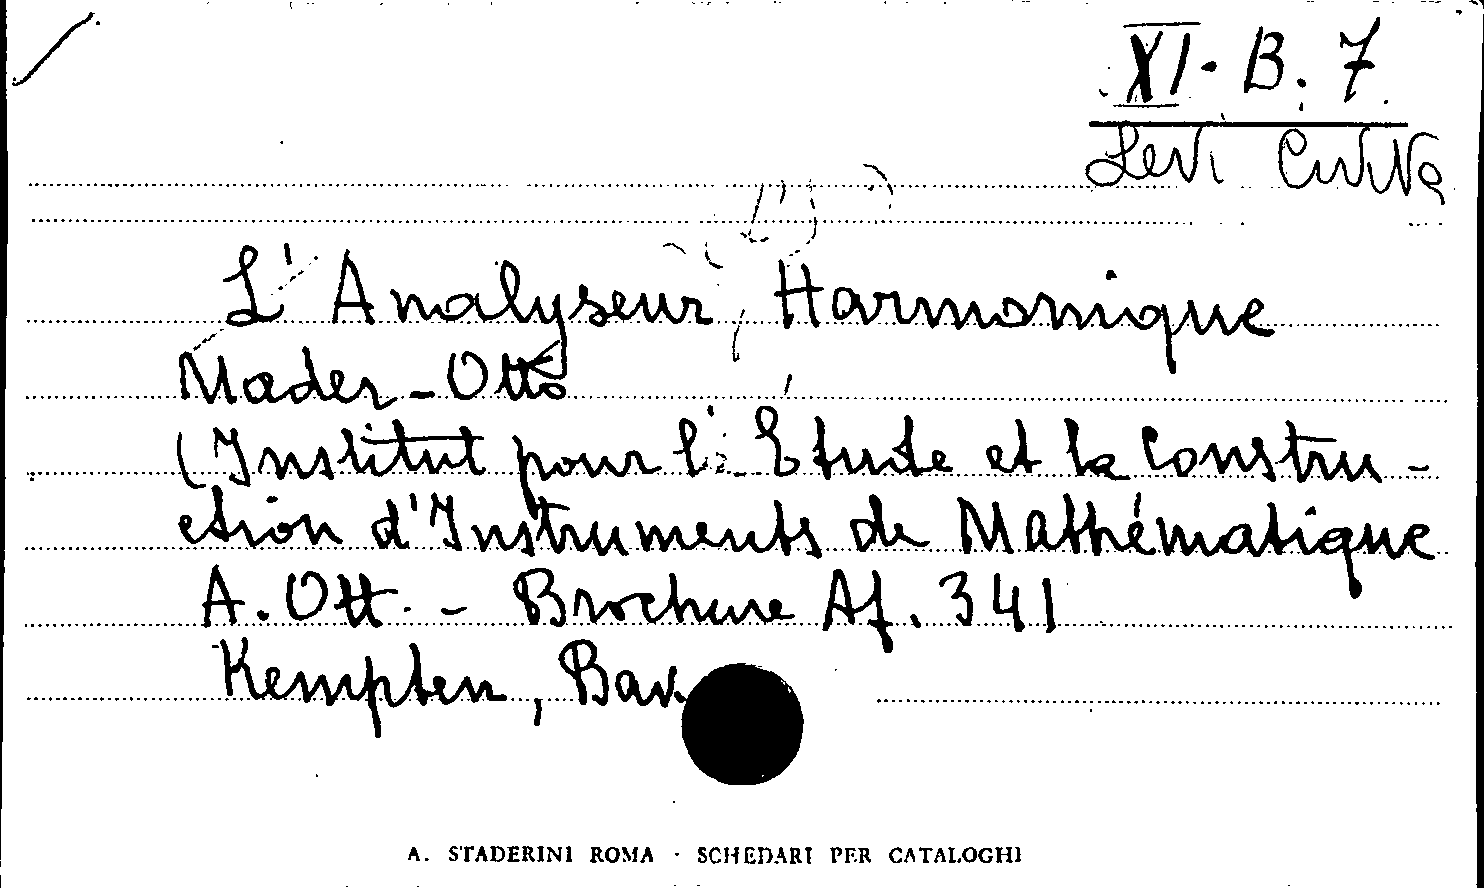 XI. B. 7
Levi Civita
L'Analyseur Harmonique
Mader-Ott
(Institut pour l'Etude et la Constru-
ction d'Instruments de Mathématique
A. Ott. - Brochure Af. 341
Kempten, Bav.
A. STADERINI ROMA · SCHEDARI PER CATALOGHI